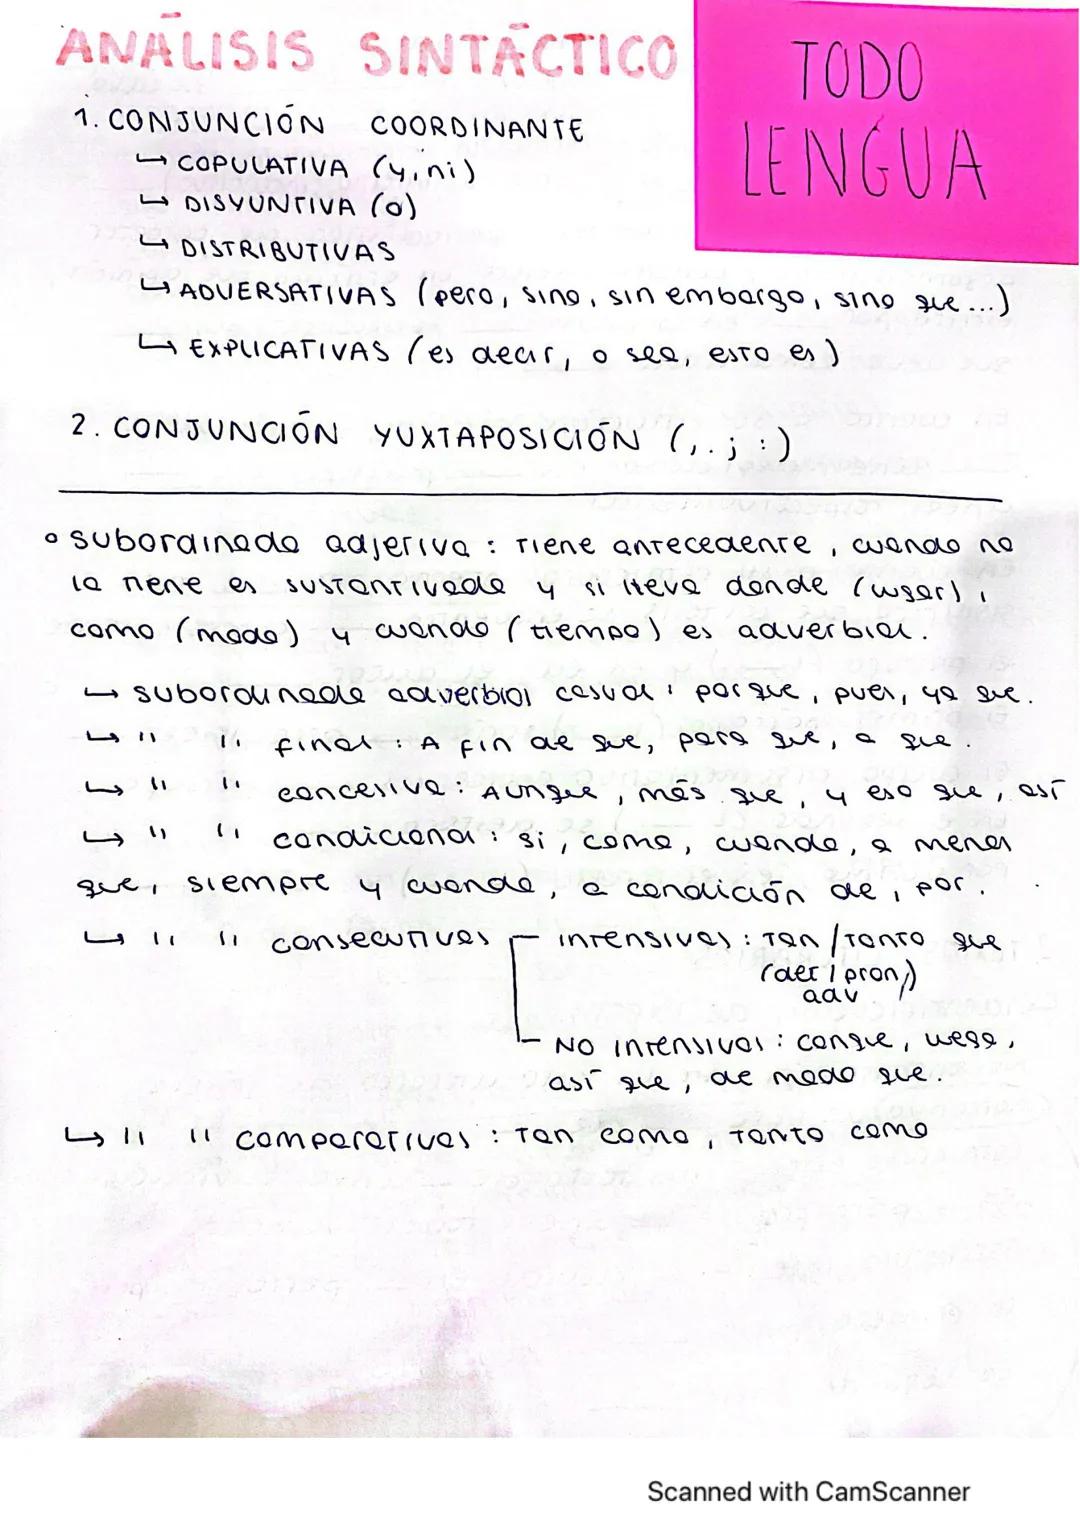 ANÁLISIS SINTÁCTICO
TODO
LENGUA
1. CONJUNCIÓN COORDINANTE
↳ COPULATIVA (y, ni)
↳ DISYUNTIVA (o)
↳ DISTRIBUTIVAS
↳ ADVERSATIVAS (pero, sino, sin embargo, sino que...)
↳ EXPLICATIVAS (es decir, o sea, esto es)
2. CONJUNCIÓN YUXTAPOSICIÓN (, . ; :)
• subordinada adjetiva: tiene antecedente, cuando no
la tiene es sustantivada y si lleva donde (lugar),
como (modo) y cuando (tiempo) es adverbial.
↳ subordinada adverbial causal: porque, pues, ya que.
↳ " " final: A fin de que, para que, a que.
↳ " " concesiva: Aunque, más que, y eso que, así
↳ " " condicional: si, como, cuando, a menos
que, siempre y cuando, a condición de, por.
↳ " " consecutivas intensivas: tan/tanto que
(det/pron/)
adv
NO intensivas: conque, luego,
así que, de modo que.
↳ " " comparativas: tan como, tanto como
Scanned with CamScanner